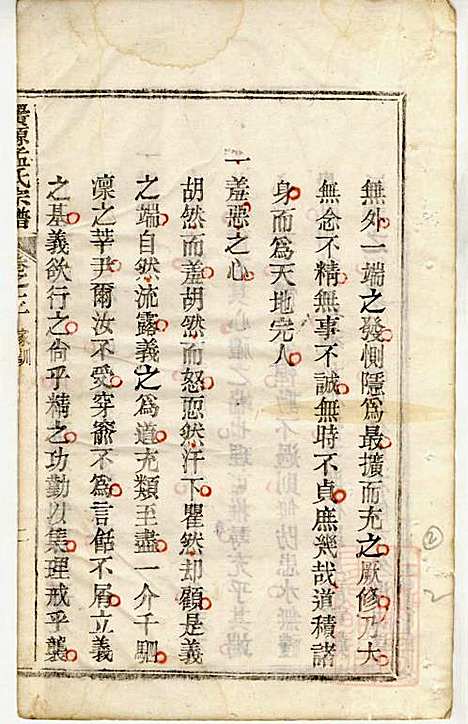 無外一端之發惻隱為最擴而充之厥修乃大
無念不精無事不誠無時不貞庶幾哉道積諸
身而為天地完人
一羞惡之心
胡然而羞胡然而怒恧然汗下瞿然却顧是義
之端自然流露義之為道充類至盡一介千駟
凜之莘尹爾汝不受穿窬不為言餂不屑立義
之基義欲行之尙乎精之功勤以集理戒乎襲
孟氏宗譜
家訓
2
2